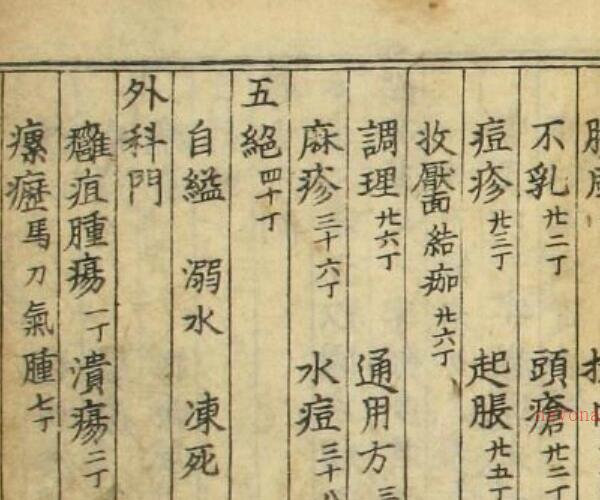 不乳 廿二丁 頭瘡 廿二丁
痘疹 廿三丁 起脹 廿五丁
收靨面 結痂 廿六丁
調理 廿六丁 通用方
麻疹 三十六丁 水痘 三十八
五絕 四十丁
自縊 溺水 凍死
外科門
癰疽腫瘍 一丁 潰瘍 二丁
瘰癧 馬刀氣腫 七丁